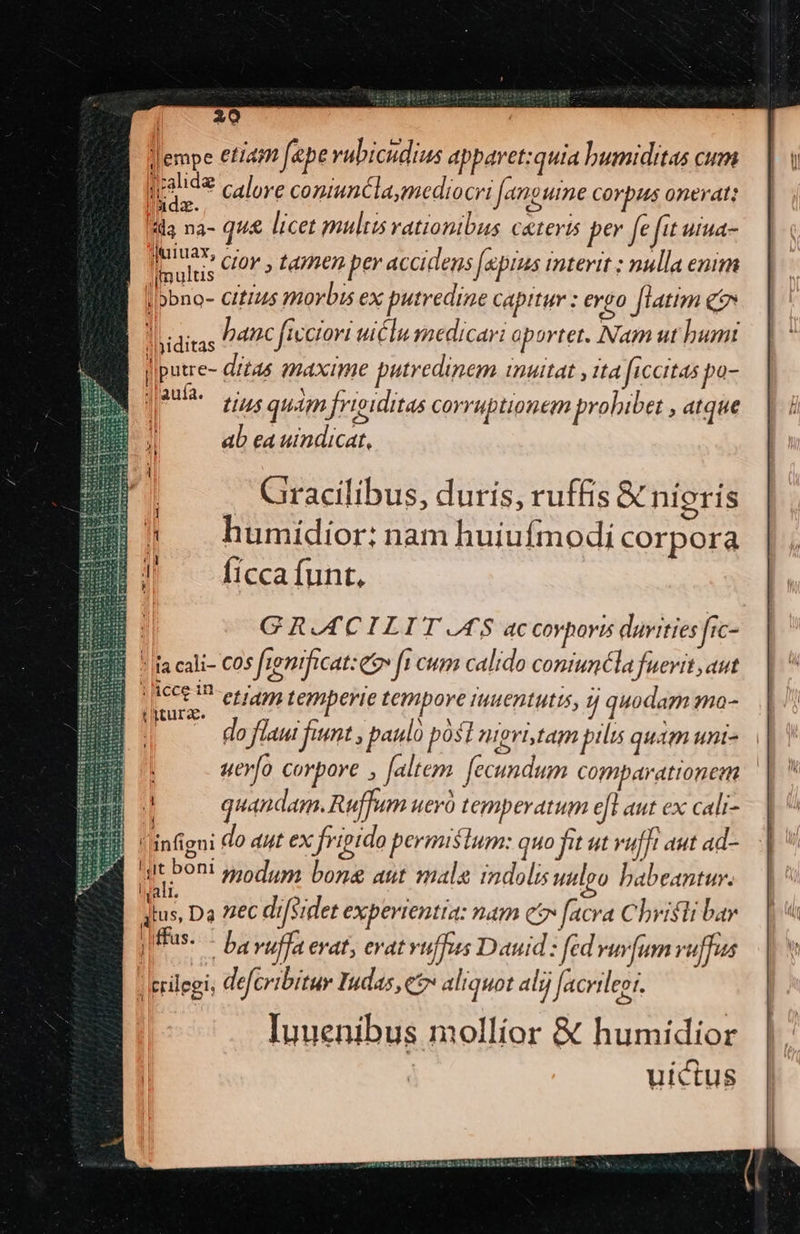 20
etiam sæpe rubicūdius apparet: quia humiditas cum
calore coniuncta, mediocri sanguine corpus onerat:
quæ licet multis rationibus cæteris per se sit uiua-
cior, tamen per accidens sæpius interit; nulla enim
citius morbis ex putredine capitur: ergo statim &
hanc sicciori uictu medicari oportet. Nam ut humi
ditas maxime putredinem inuitat, ita siccitas po-
tius quàm frigiditas corruptionem prohibet, atque
ab ea uindicat.
Gracilibus, duris, ruffis & nigris
humidior: nam huiusmodi corpora
sicca sunt.
GRACILITAS ac corporis durities sic-
cos significat: & si cum calido coniuncta fuerit, aut
etiam temperie tempore iuuentutis, ij quodam mo-
do flaui fiunt, paulò pòst nigri, tam pilis quàm uni-
uerso corpore, saltem secundum comparationem
quandam. Ruffum uerò temperatum est aut ex cali-
do aut ex frigido permistum: quo fit ut ruffi aut ad-
modum bonæ aut malæ indolis uulgo habeantur.
nec dissidet experientia: nam & sacra Christi bar
ba ruffa erat, erat ruffus Dauid: sed rursum ruffus
describitur Iudas, & aliquot alij sacrilegi.
Iuuenibus mollior & humidior
uictus